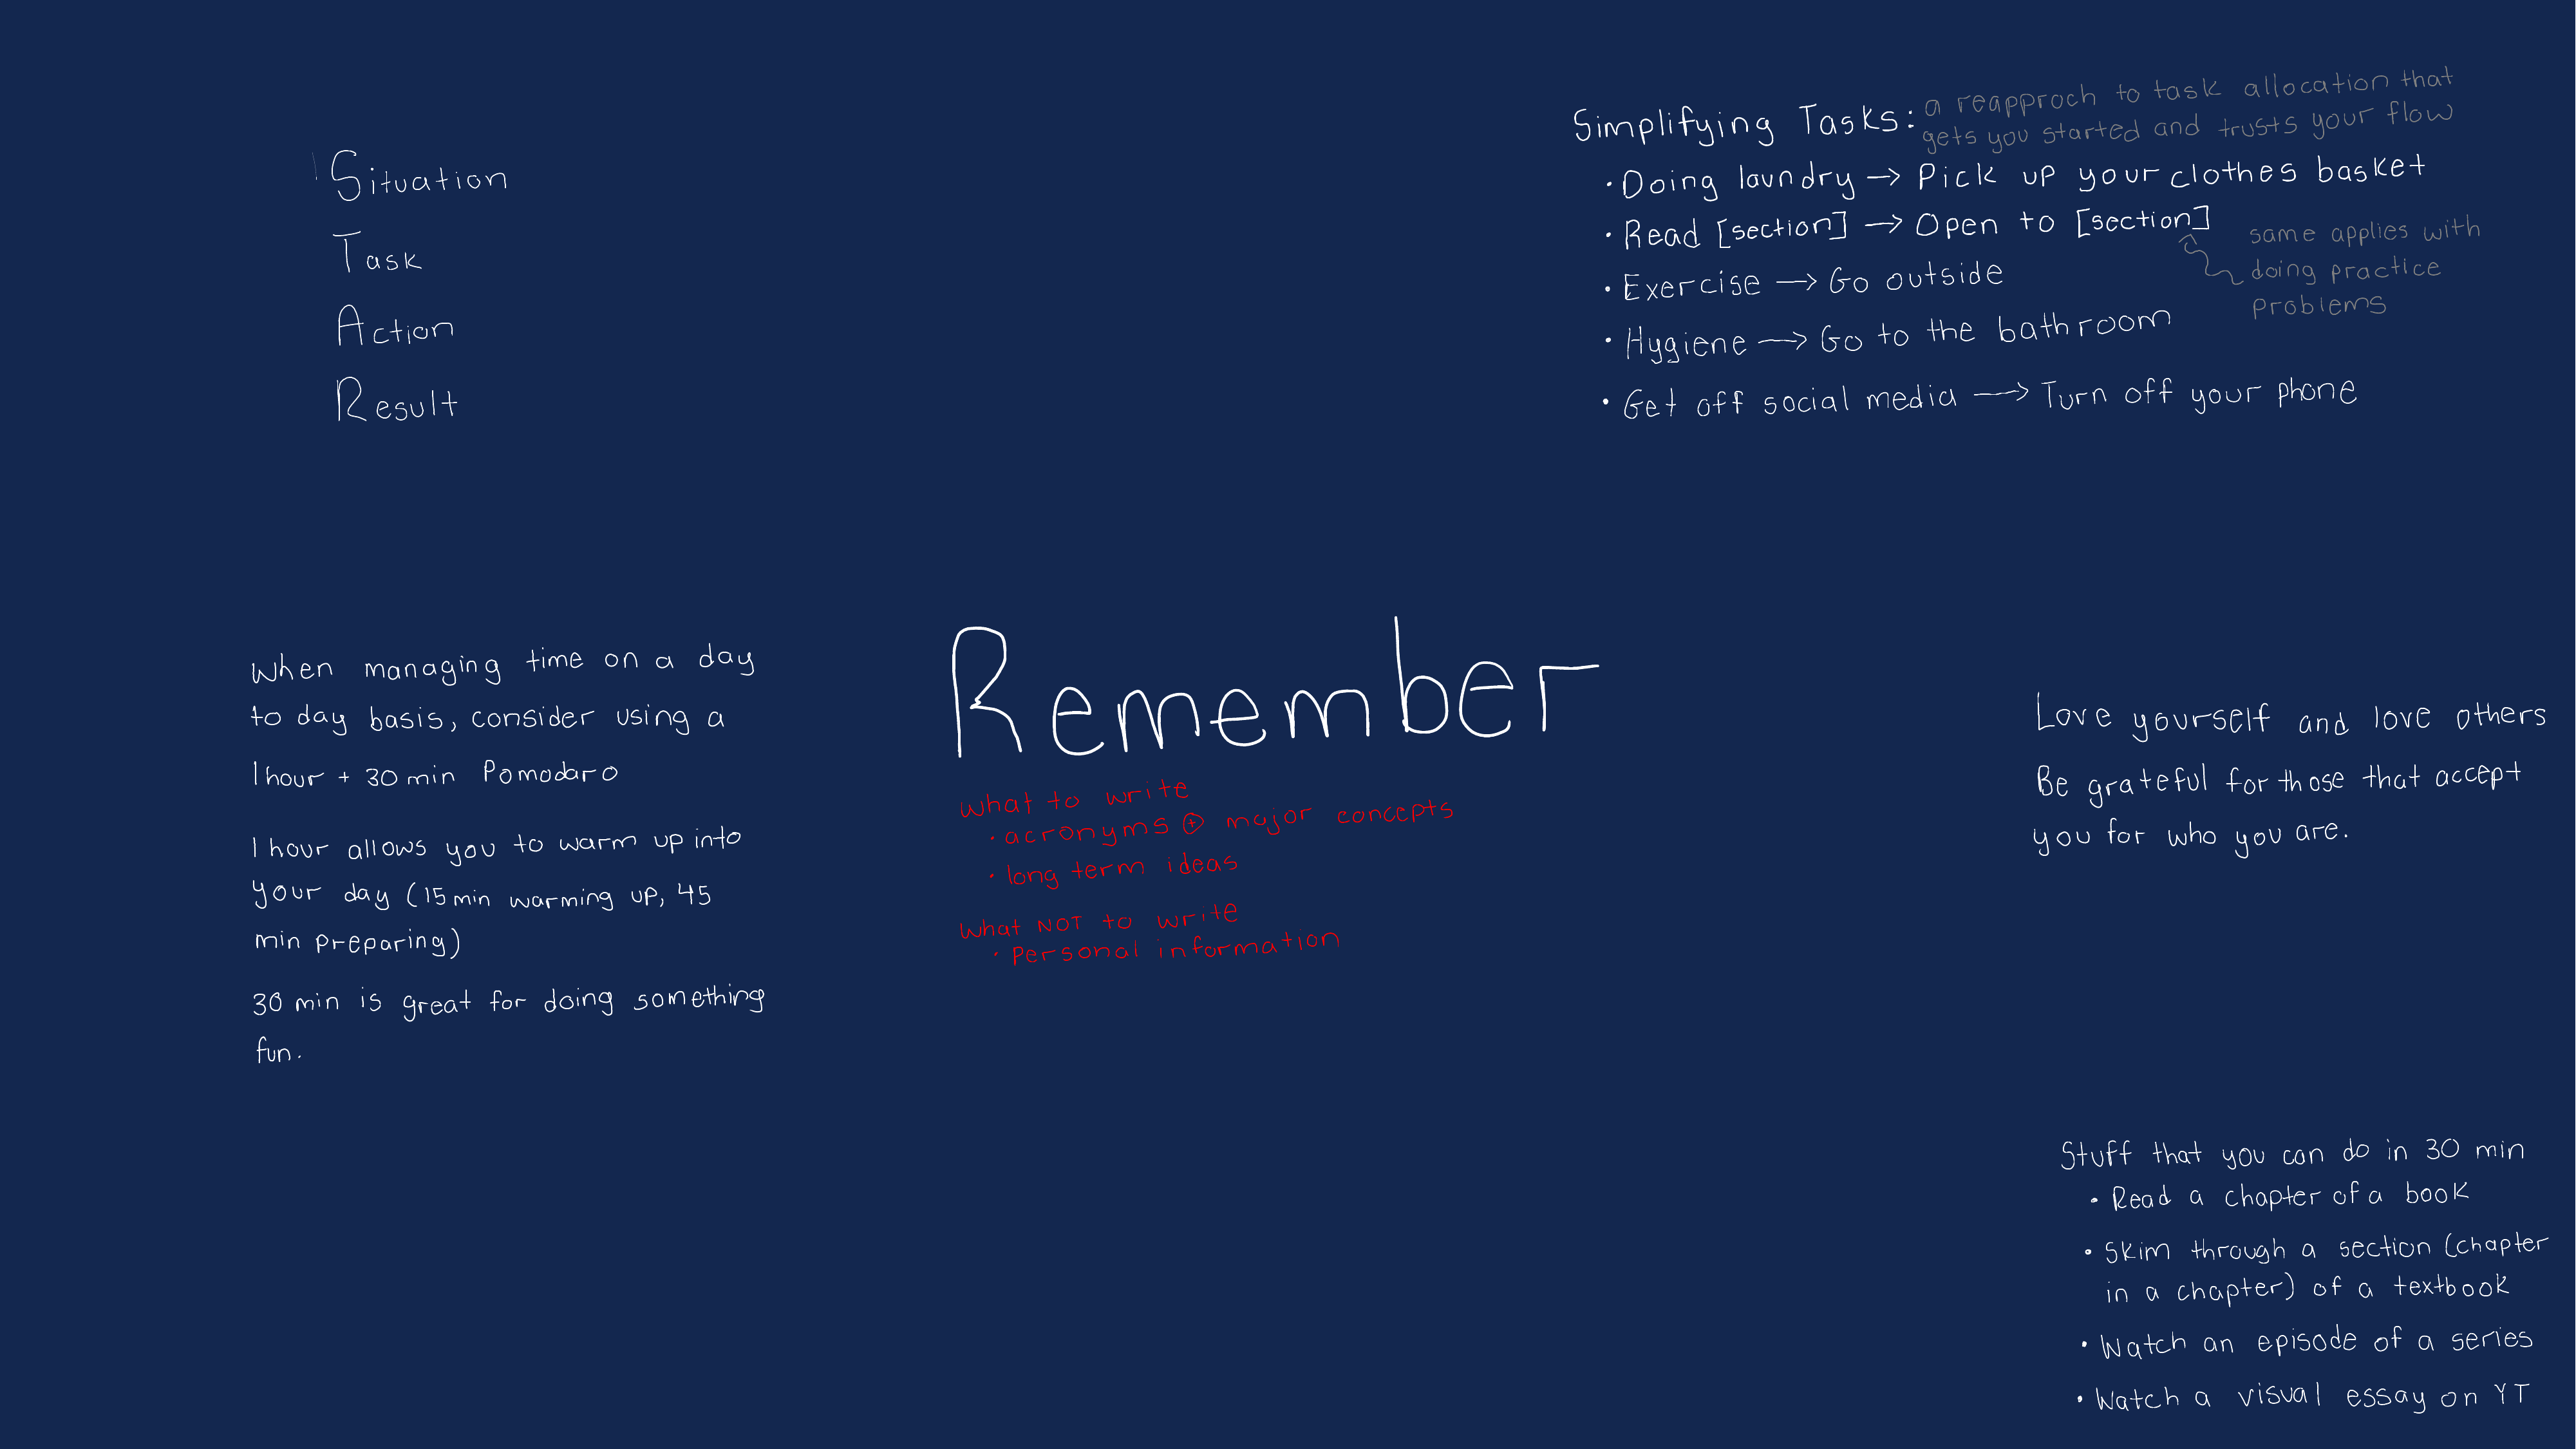 Situation
Task
Action
Result
Simplifying Tasks: a reapproch to task allocation that
gets you started and trusts your flow
• Doing laundry → Pick up your clothes basket
• Read [section] → Open to [section]
same applies with
doing practice
problems
• Exercise → Go outside
• Hygiene → Go to the bathroom
• Get off social media → Turn off your phone
When managing time on a day
to day basis, consider using a
1 hour + 30 min Pomodaro
1 hour allows you to warm up into
your day (15 min warming up, 45
min preparing)
30 min is great for doing something
fun.
Remember
what to write
• acronyms ⊕ major concepts
• long term ideas
what NOT to write
• personal information
Love yourself and love others
Be grateful for those that accept
you for who you are.
Stuff that you can do in 30 min
• Read a chapter of a book
• Skim through a section (chapter
in a chapter) of a textbook
• Watch an episode of a series
• Watch a visual essay on YT